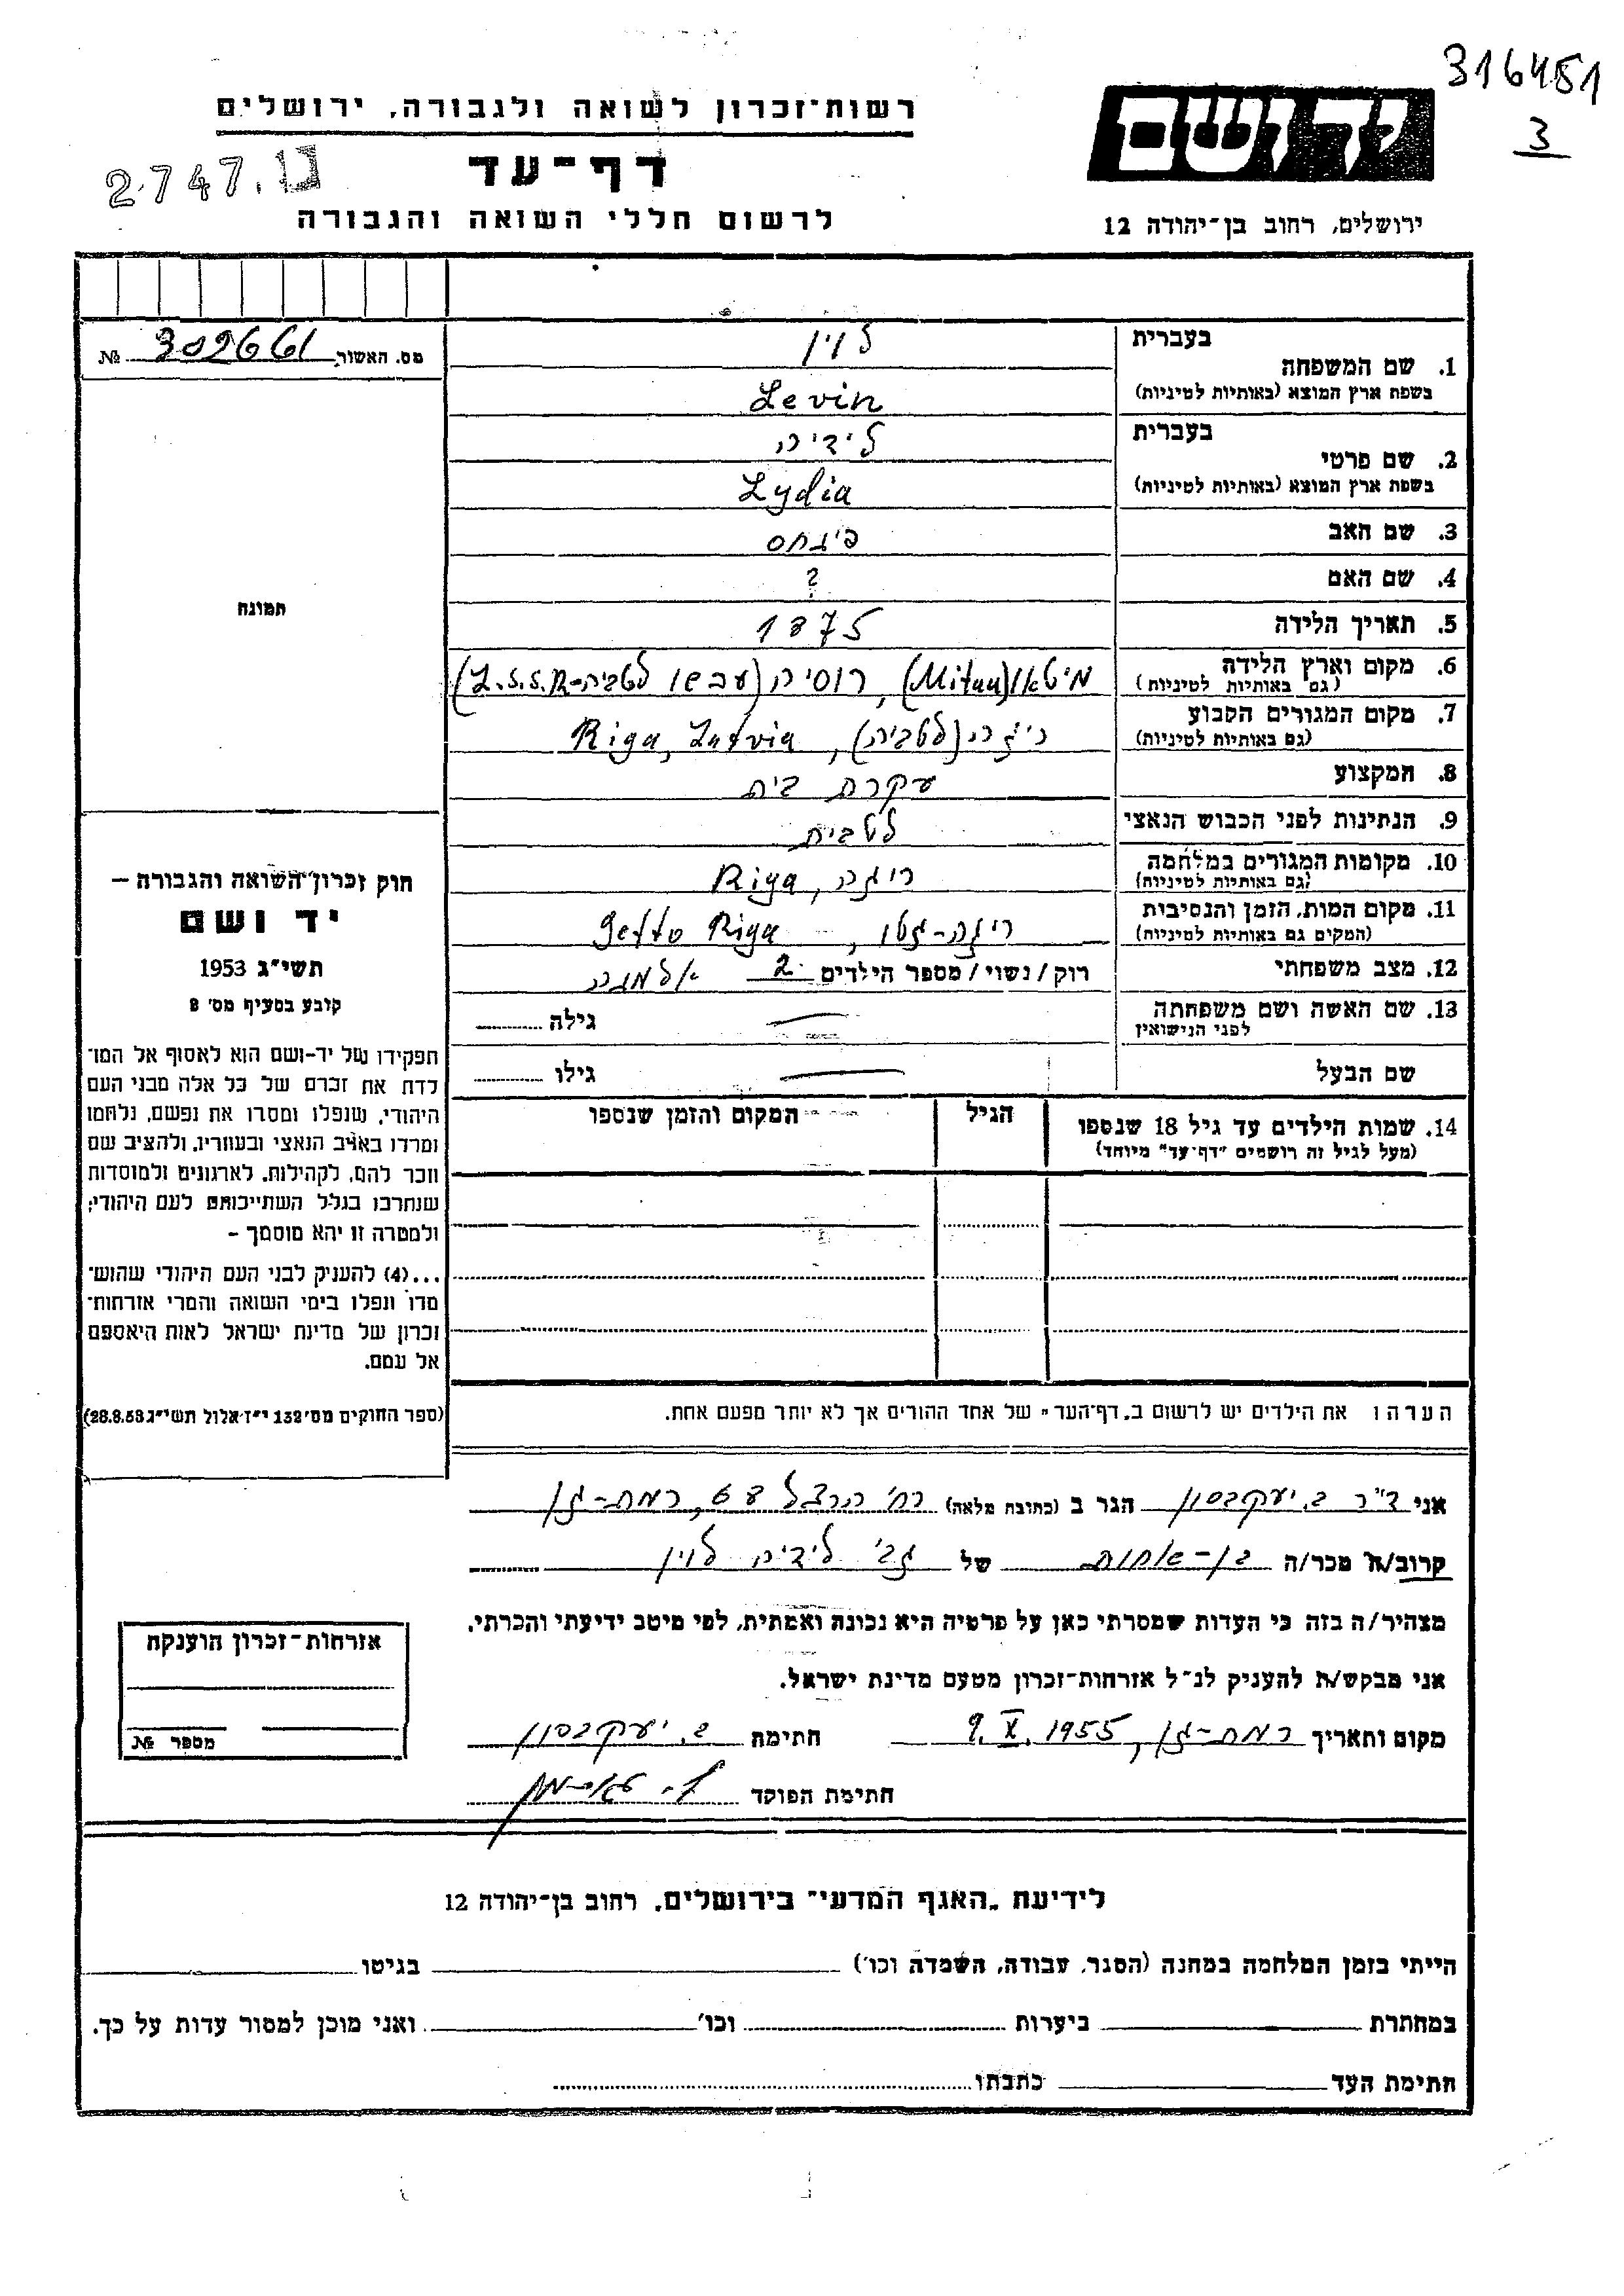 316451
3
יד ושם
ירושלים, רחוב בן־יהודה 12
רשות־זכרון לשואה ולגבורה, ירושלים
דף־עד
לרשום חללי השואה והגבורה
2747.
מס. האשור 302661 №
בעברית לוין
1. שם המשפחה
בשפת ארץ המוצא (באותיות לטיניות) Levin
בעברית לידיה
2. שם פרטי
בשפת ארץ המוצא (באותיות לטיניות) Lydia
3. שם האב פינחס
4. שם האם ?
5. תאריך הלידה 1875
6. מקום וארץ הלידה מיטאו (Mitau), רוסיה (עכשו לטביה-L.S.S.R)
(גם באותיות לטיניות)
7. מקום המגורים הקבוע ריגה (לטביה), Riga, Latvia
(גם באותיות לטיניות)
8. המקצוע עקרת בית
9. הנתינות לפני הכבוש הנאצי לטבית
10. מקומות המגורים במלחמה ריגה, Riga
(גם באותיות לטיניות)
11. מקום המות, הזמן והנסיבות ריגה-גטו, Getto Riga
(המקום גם באותיות לטיניות)
12. מצב משפחתי רוק/נשוי/מספר הילדים 2 אלמנה
13. שם האשה ושם משפחתה גילה
לפני הנישואין
שם הבעל גילו
14. שמות הילדים עד גיל 18 שנספו הגיל המקום והזמן שנספו
(מעל לגיל זה רושמים "דף־עד" מיוחד)
תמונה
חוק זכרון־השואה והגבורה —
יד ושם
תשי״ג 1953
קובע בסעיף מס׳ 8
תפקידו של יד־ושם הוא לאסוף אל המו־
לדת את זכרם של כל אלה מבני העם
היהודי, שנפלו ומסרו את נפשם, נלחמו
ומרדו באויב הנאצי ובעוזריו, ולהציב שם
וזכר להם, לקהילות, לארגונים ולמוסדות
שנחרבו בגלל השתייכותם לעם היהודי;
ולמטרה זו יהא מוסמך –
...(4) להעניק לבני העם היהודי שהוש־
מדו ונפלו בימי השואה והמרי אזרחות־
זכרון של מדינת ישראל לאות היאספם
אל עמם.
(ספר החוקים מס׳ 132 י״ז אלול תשי״ג 28.8.53)
הערה: את הילדים יש לרשום ב„דף־העד״ של אחד ההורים אך לא יותר מפעם אחת.
אני ד״ר ב. יעקבסון הגר ב (כתובת מלאה) רח׳ הרצל 68, רמת-גן
קרוב/ת מכר/ה בן-אחות של גב׳ לידיה לוין
מצהיר/ה בזה כי העדות שמסרתי כאן על פרטיה היא נכונה ואמתית, לפי מיטב ידיעתי והכרתי.
אני מבקש/ת להעניק לנ״ל אזרחות־זכרון מטעם מדינת ישראל.
מקום ותאריך רמת-גן, 9.X.1955 חתימה ב. יעקבסון
חתימת הפוקד
אזרחות־זכרון הוענקה
מספר №
לידיעת „האגף המדעי״ בירושלים, רחוב בן־יהודה 12
הייתי בזמן המלחמה במחנה (הסגר, עבודה, השמדה וכו׳) בגיטו
במחתרת ביערות וכו׳ ואני מוכן למסור עדות על כך.
חתימת העד כתבתו